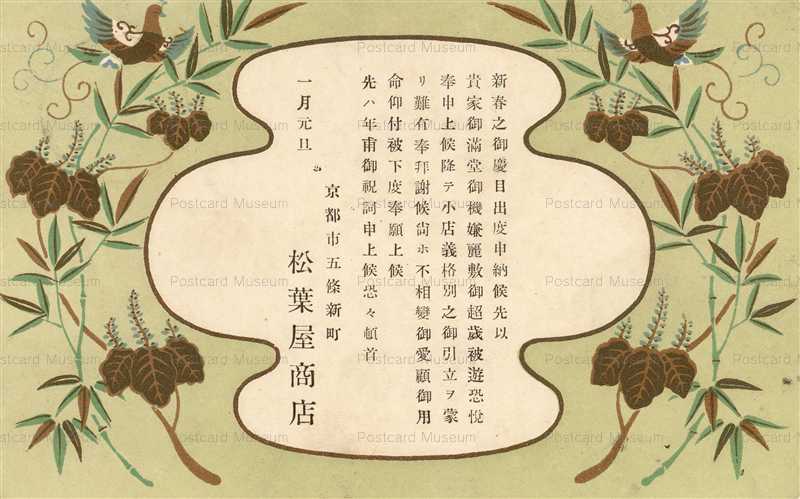 新春之御慶目出度申納候先以
貴家御滿堂御機嫌麗敷御超歲被遊恐悅
奉申上候降テ小店義格別之御引立ヲ蒙
リ難有奉拜謝候尙ホ不相變御愛顧御用
命仰付被下度奉願上候
先ハ年甫御祝詞申上候恐々頓首
一月元旦
京都市五條新町
松葉屋商店
Postcard Museum